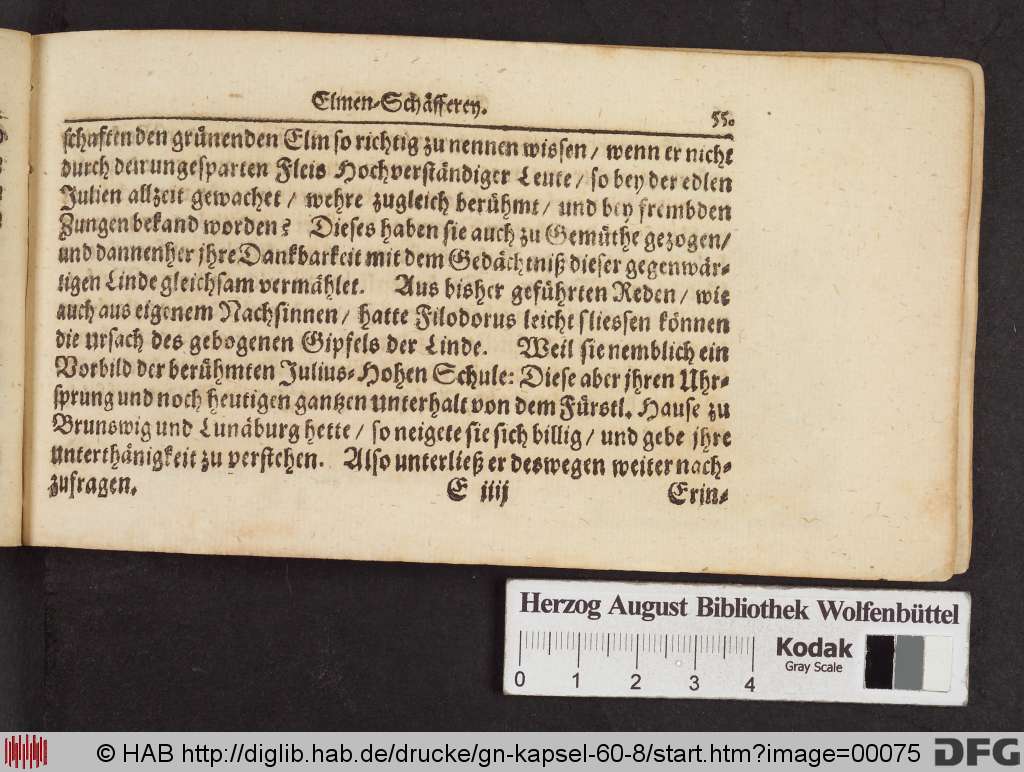 Elmen-Schäfferey.
55.
schaften den grünenden Elm so richtig zu nennen wissen / wenn er nicht
durch den ungesparten Fleis Hochverständiger Leute / so bey der edlen
Julien allzeit gewachet / wehre zugleich berühmt / und bey frembden
Zungen bekand worden? Dieses haben sie auch zu Gemüthe gezogen /
und dannenher jhre Dankbarkeit mit dem Gedächtniß dieser gegenwär-
tigen Linde gleichsam vermählet. Aus bisher geführten Reden / wie
auch aus eigenem Nachsinnen / hatte Filodorus leicht sliessen können
die ursach des gebogenen Gipfels der Linde. Weil sie nemblich ein
Vorbild der berühmten Julius-Hohen Schule: Diese aber jhren Uhr-
sprung und noch heutigen gantzen unterhalt von dem Fürstl. Hause zu
Brunswig und Lunäburg hette / so neigete sie sich billig / und gebe jhre
unterthänigkeit zu verstehen. Also unterließ er deswegen weiter nach-
zufragen.
E iiij
Erin-
Herzog August Bibliothek Wolfenbüttel
0 1 2 3 4
Kodak
Gray Scale
© HAB http://diglib.hab.de/drucke/gn-kapsel-60-8/start.htm?image=00075
DFG